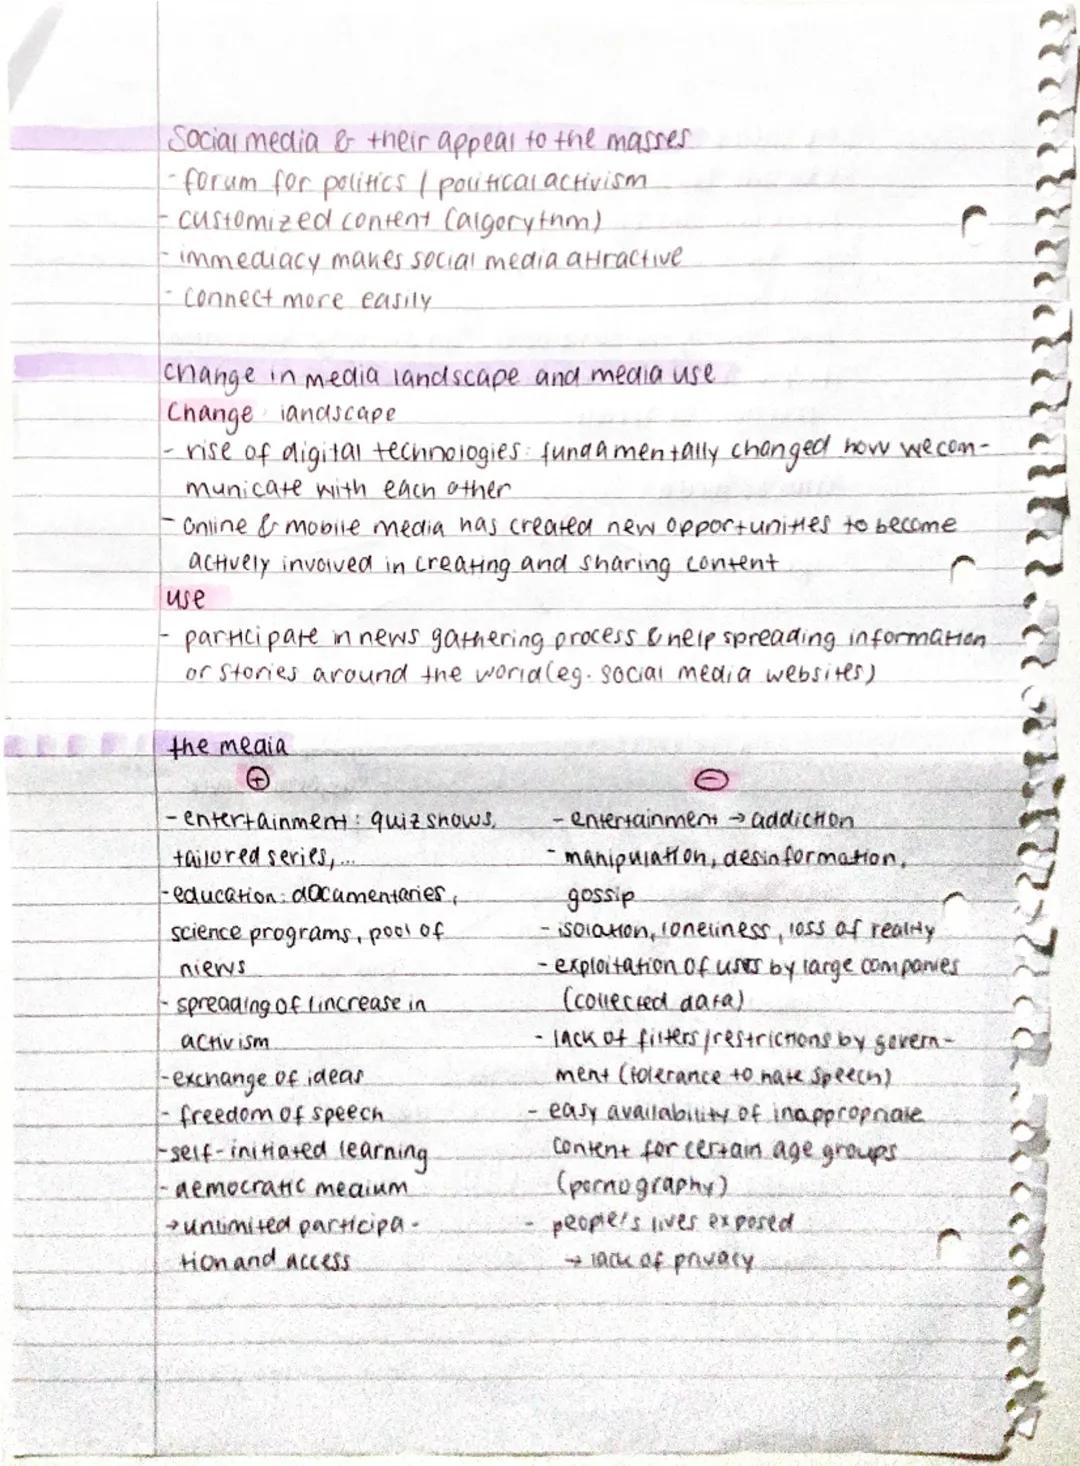 Social media & their appeal to the masses
- forum for politics / political activism
- customized content (algorythm)
- immediacy makes social media attractive
- connect more easily
change in media landscape and media use
Change landscape
- rise of digital technologies: fundamentally changed how we com-
municate with each other
- online & mobile media has created new opportunities to become
actively involved in creating and sharing content
use
- participate in news gathering process & help spreading information
or stories around the world (eg. social media websites)
the media
+
- entertainment: quiz shows,
tailored series, ...
- education: documentaries,
science programs, pool of
news
- spreading of / increase in
activism
- exchange of ideas
- freedom of speech
- self-initiated learning
- democratic medium
→ unlimited participa-
tion and access
-
- entertainment → addiction
- manipulation, desinformation,
gossip
- isolation, loneliness, loss of reality
- exploitation of users by large companies
(collected data)
- lack of filters / restrictions by govern-
ment (tolerance to hate speech)
- easy availability of inappropriate
content for certain age groups
(pornography)
- people's lives exposed
→ lack of privacy